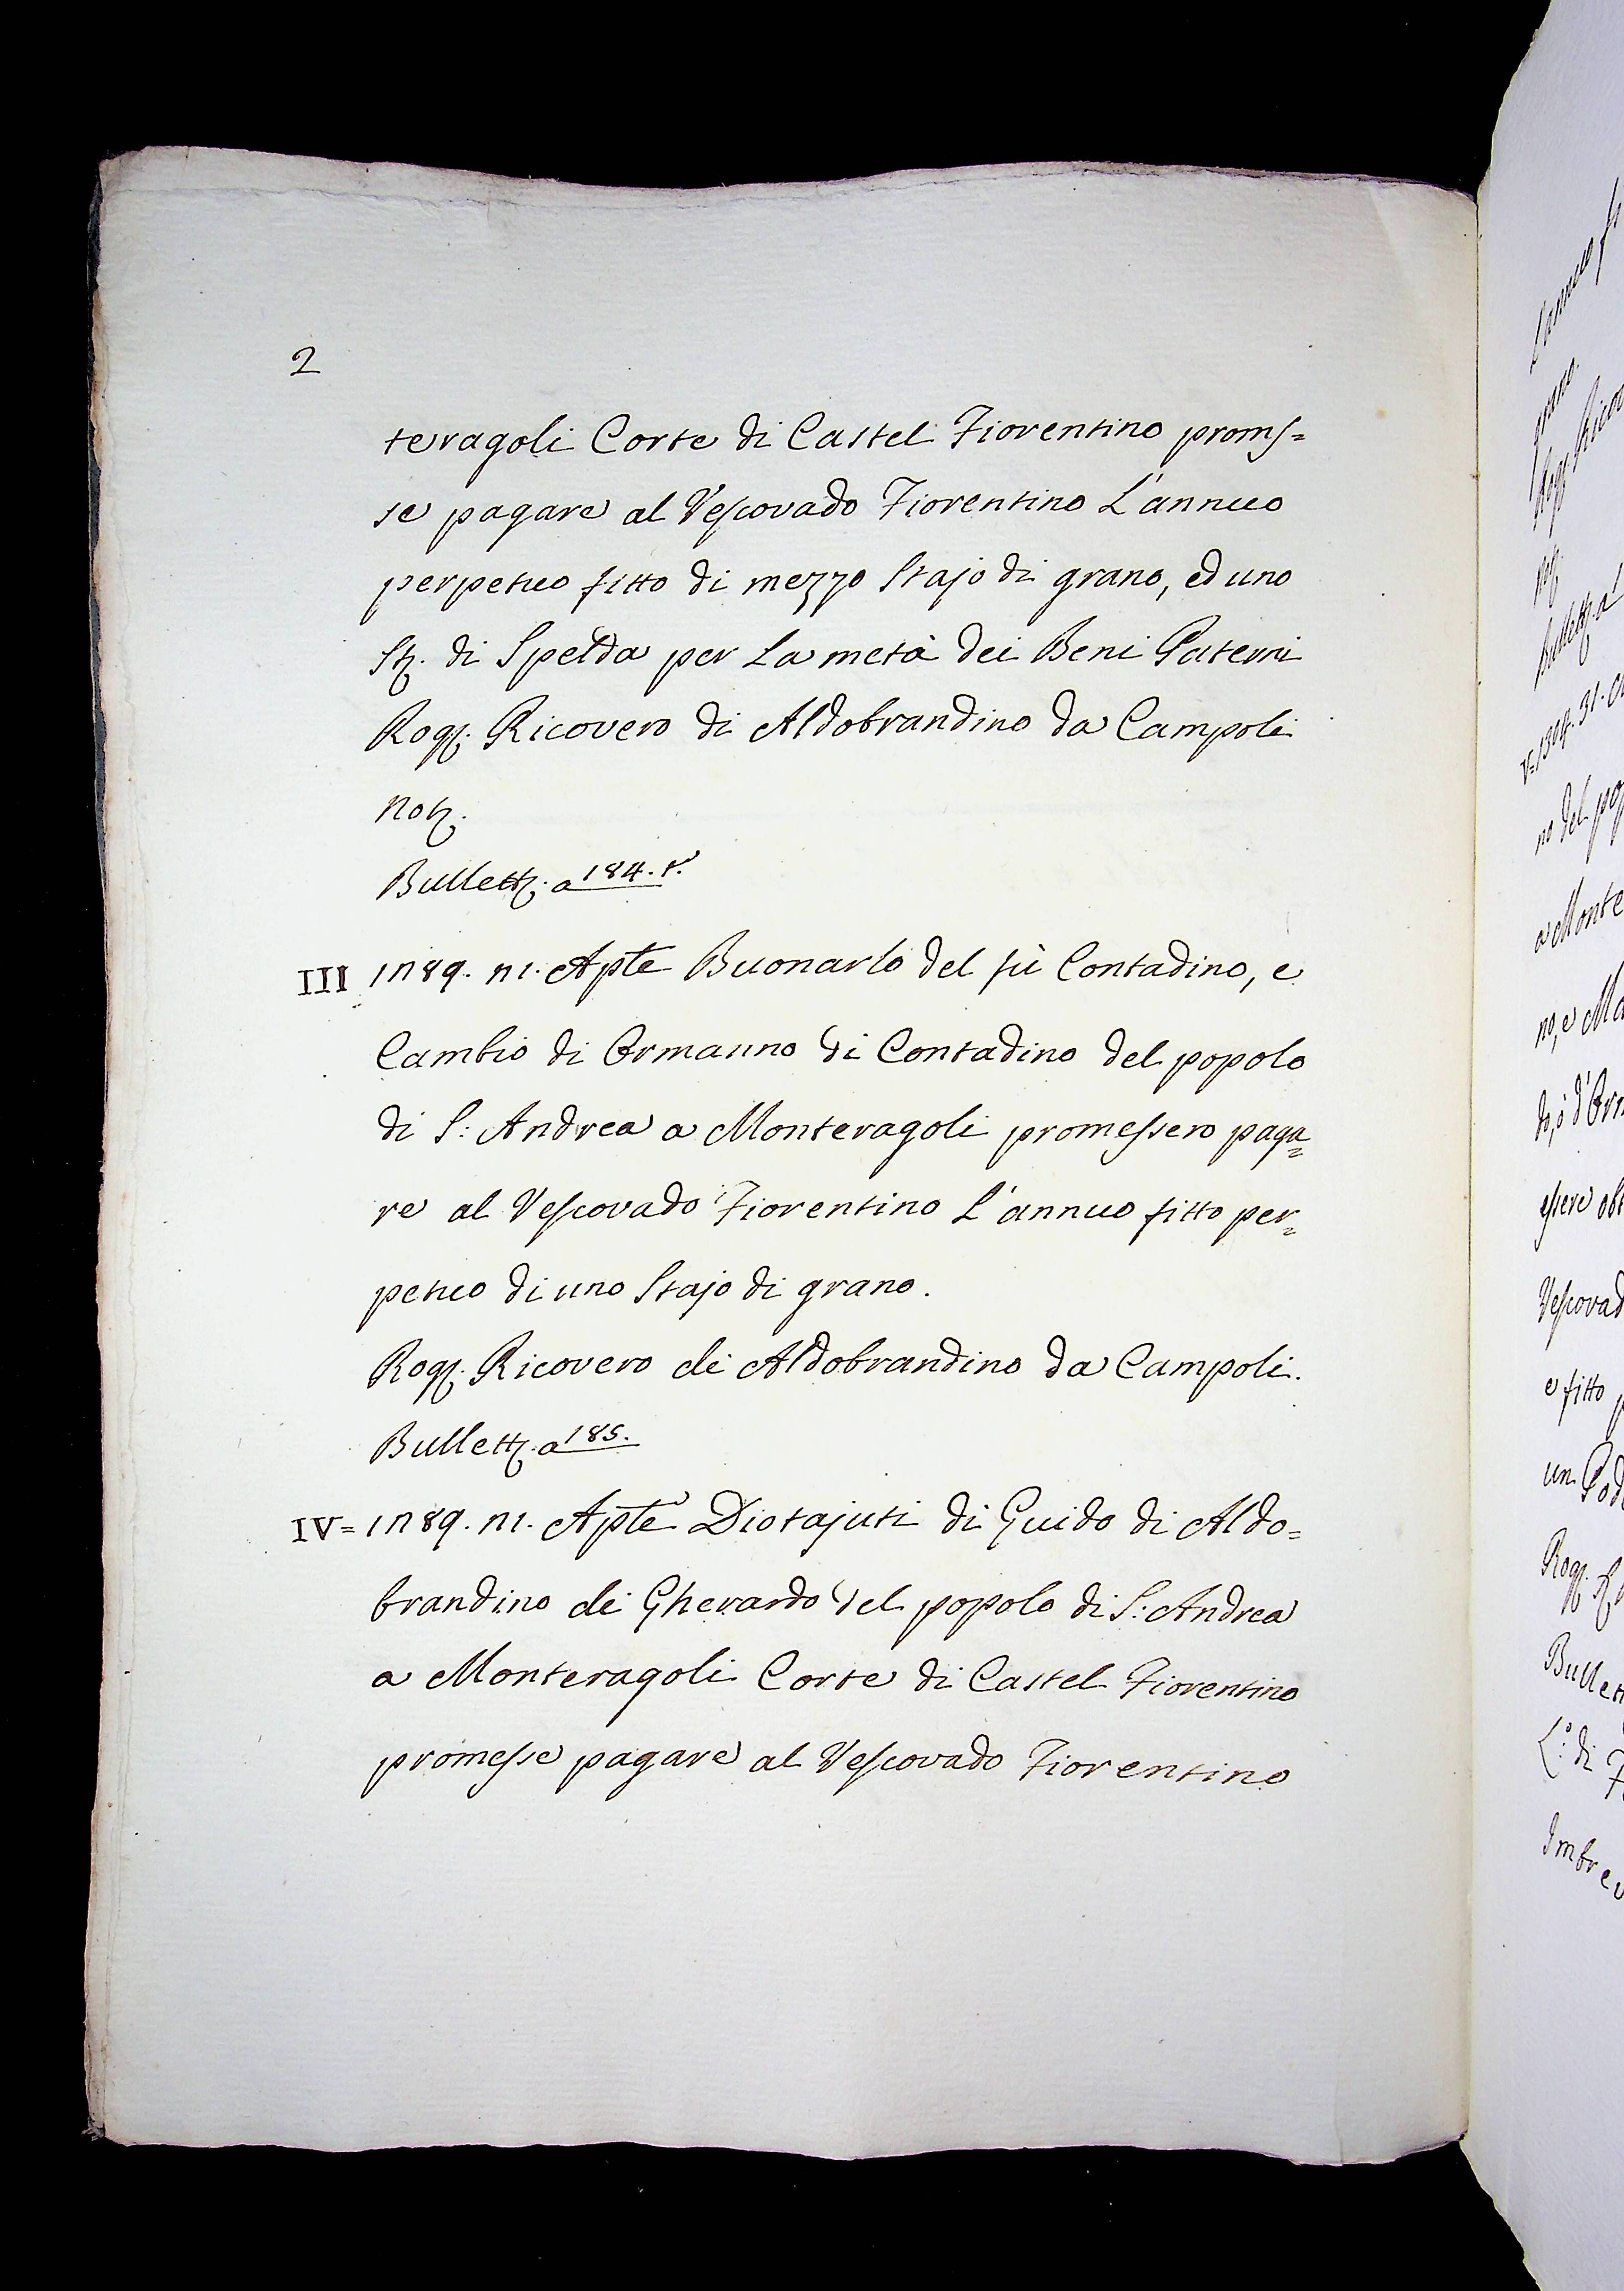 2
teragoli Corte di Castel Fiorentino promes=
se pagare al Vescovado Fiorentino L'annuo
perpetuo fitto di mezzo Stajo di grano, ed uno
St. di Spelda per La metà dei Beni Paterni
Rog. Ricovero di Aldobrandino da Campoli
Not.
Bullett. a 184. t.
III 1289. 21. Apte Buonarlo del fù Contadino, e
Cambio di Ormanno di Contadino del popolo
di S: Andrea a Monteragoli promessero paga=
re al Vescovado Fiorentino L'annuo fitto per=
petuo di uno Stajo di grano.
Rog. Ricovero di Aldobrandino da Campoli.
Bullett. a 185.
IV= 1289. 21. Apte Diotajuti di Guido di Aldo=
brandino di Gherardo del popolo di S: Andrea
a Monteragoli Corte di Castel Fiorentino
promesse pagare al Vescovado Fiorentino
L'annuo
grano.
Rog. Rico
Not.
Bullett. a
V=1304. 31. O
no del pop
a Monte
no, e Ma
do, ò d'Orm
essere obb
Vescovad
e fitto
un Pod
Rog.
Bullett
L.º di
Imbrev